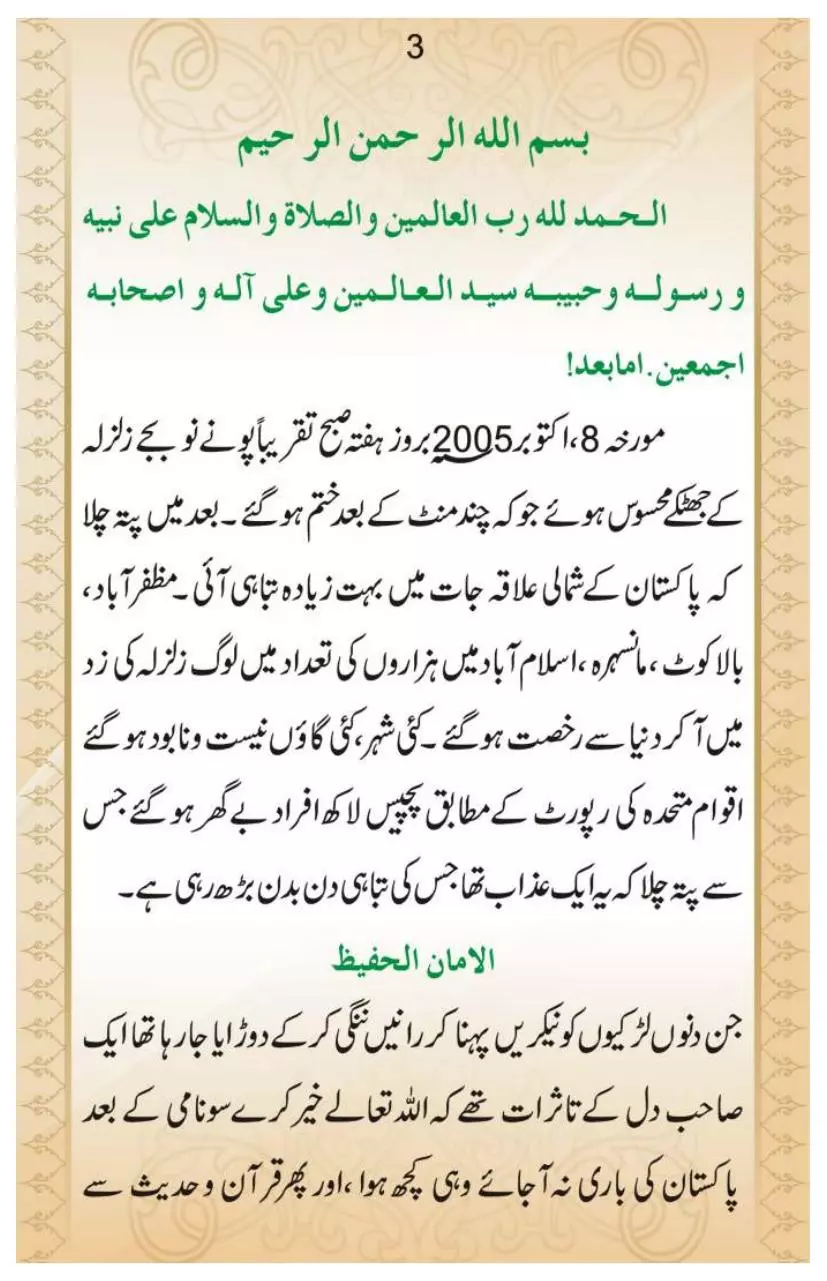 3
بسم الله الر حمن الر حيم
الـحـمد لله رب العالمين والصلاة والسلام على نبيه
و رسـولـــه وحبيبـــه سيـد الـعـالـمين وعلى آلـه و اصـحابـه
اجمعين. امابعد!
مورخہ 8،اکتوبر2005؁بروز ہفتہ صبح تقریباًپونے نو بجے زلزلہ
کے جھٹکے محسوس ہوئے جو کہ چند منٹ کے بعد ختم ہو گئے ۔ بعد میں پتہ چلا
کہ پاکستان کے شمالی علاقہ جات میں بہت زیادہ تباہی آئی ۔ مظفر آباد،
بالا کوٹ ، مانسہرہ ،اسلام آباد میں ہزاروں کی تعداد میں لوگ زلزلہ کی زد
میں آ کر دنیا سے رخصت ہو گئے ۔ کئی شہر،کئی گاؤں نیست ونابود ہو گئے
اقوام متحدہ کی رپورٹ کے مطابق پچپیس لاکھ افراد بے گھر ہو گئے جس
سے پتہ چلا کہ یہ ایک عذاب تھا جس کی تباہی دن بدن بڑھ رہی ہے۔
الامان الحفيظ
جن دنوں لڑکیوں کو نیکریں پہنا کر رانیں ننگی کر کے دوڑایا جا رہا تھا ایک
صاحب دل کے تاثرات تھے کہ اللہ تعالے خیر کرے سونامی کے بعد
پاکستان کی باری نہ آ جائے وہی کچھ ہوا ،اور پھر قرآن و حدیث سے